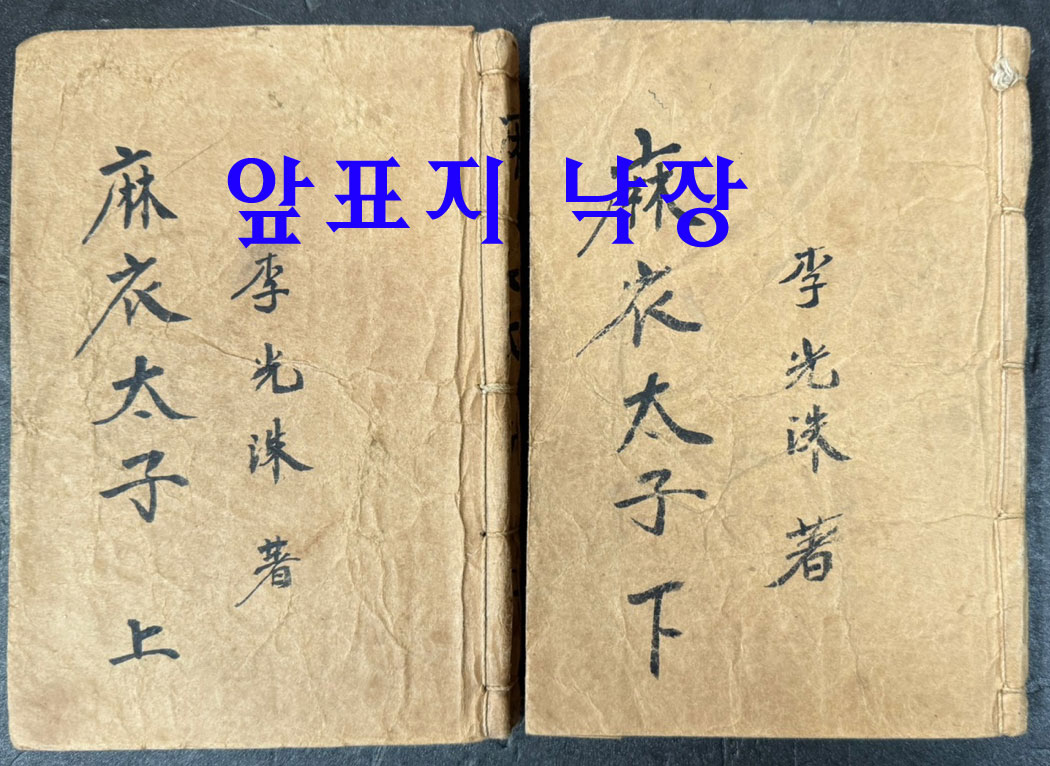 앞표지 낙장
麻衣太子 上
李光洙 著
麻衣太子 下
李光洙 著